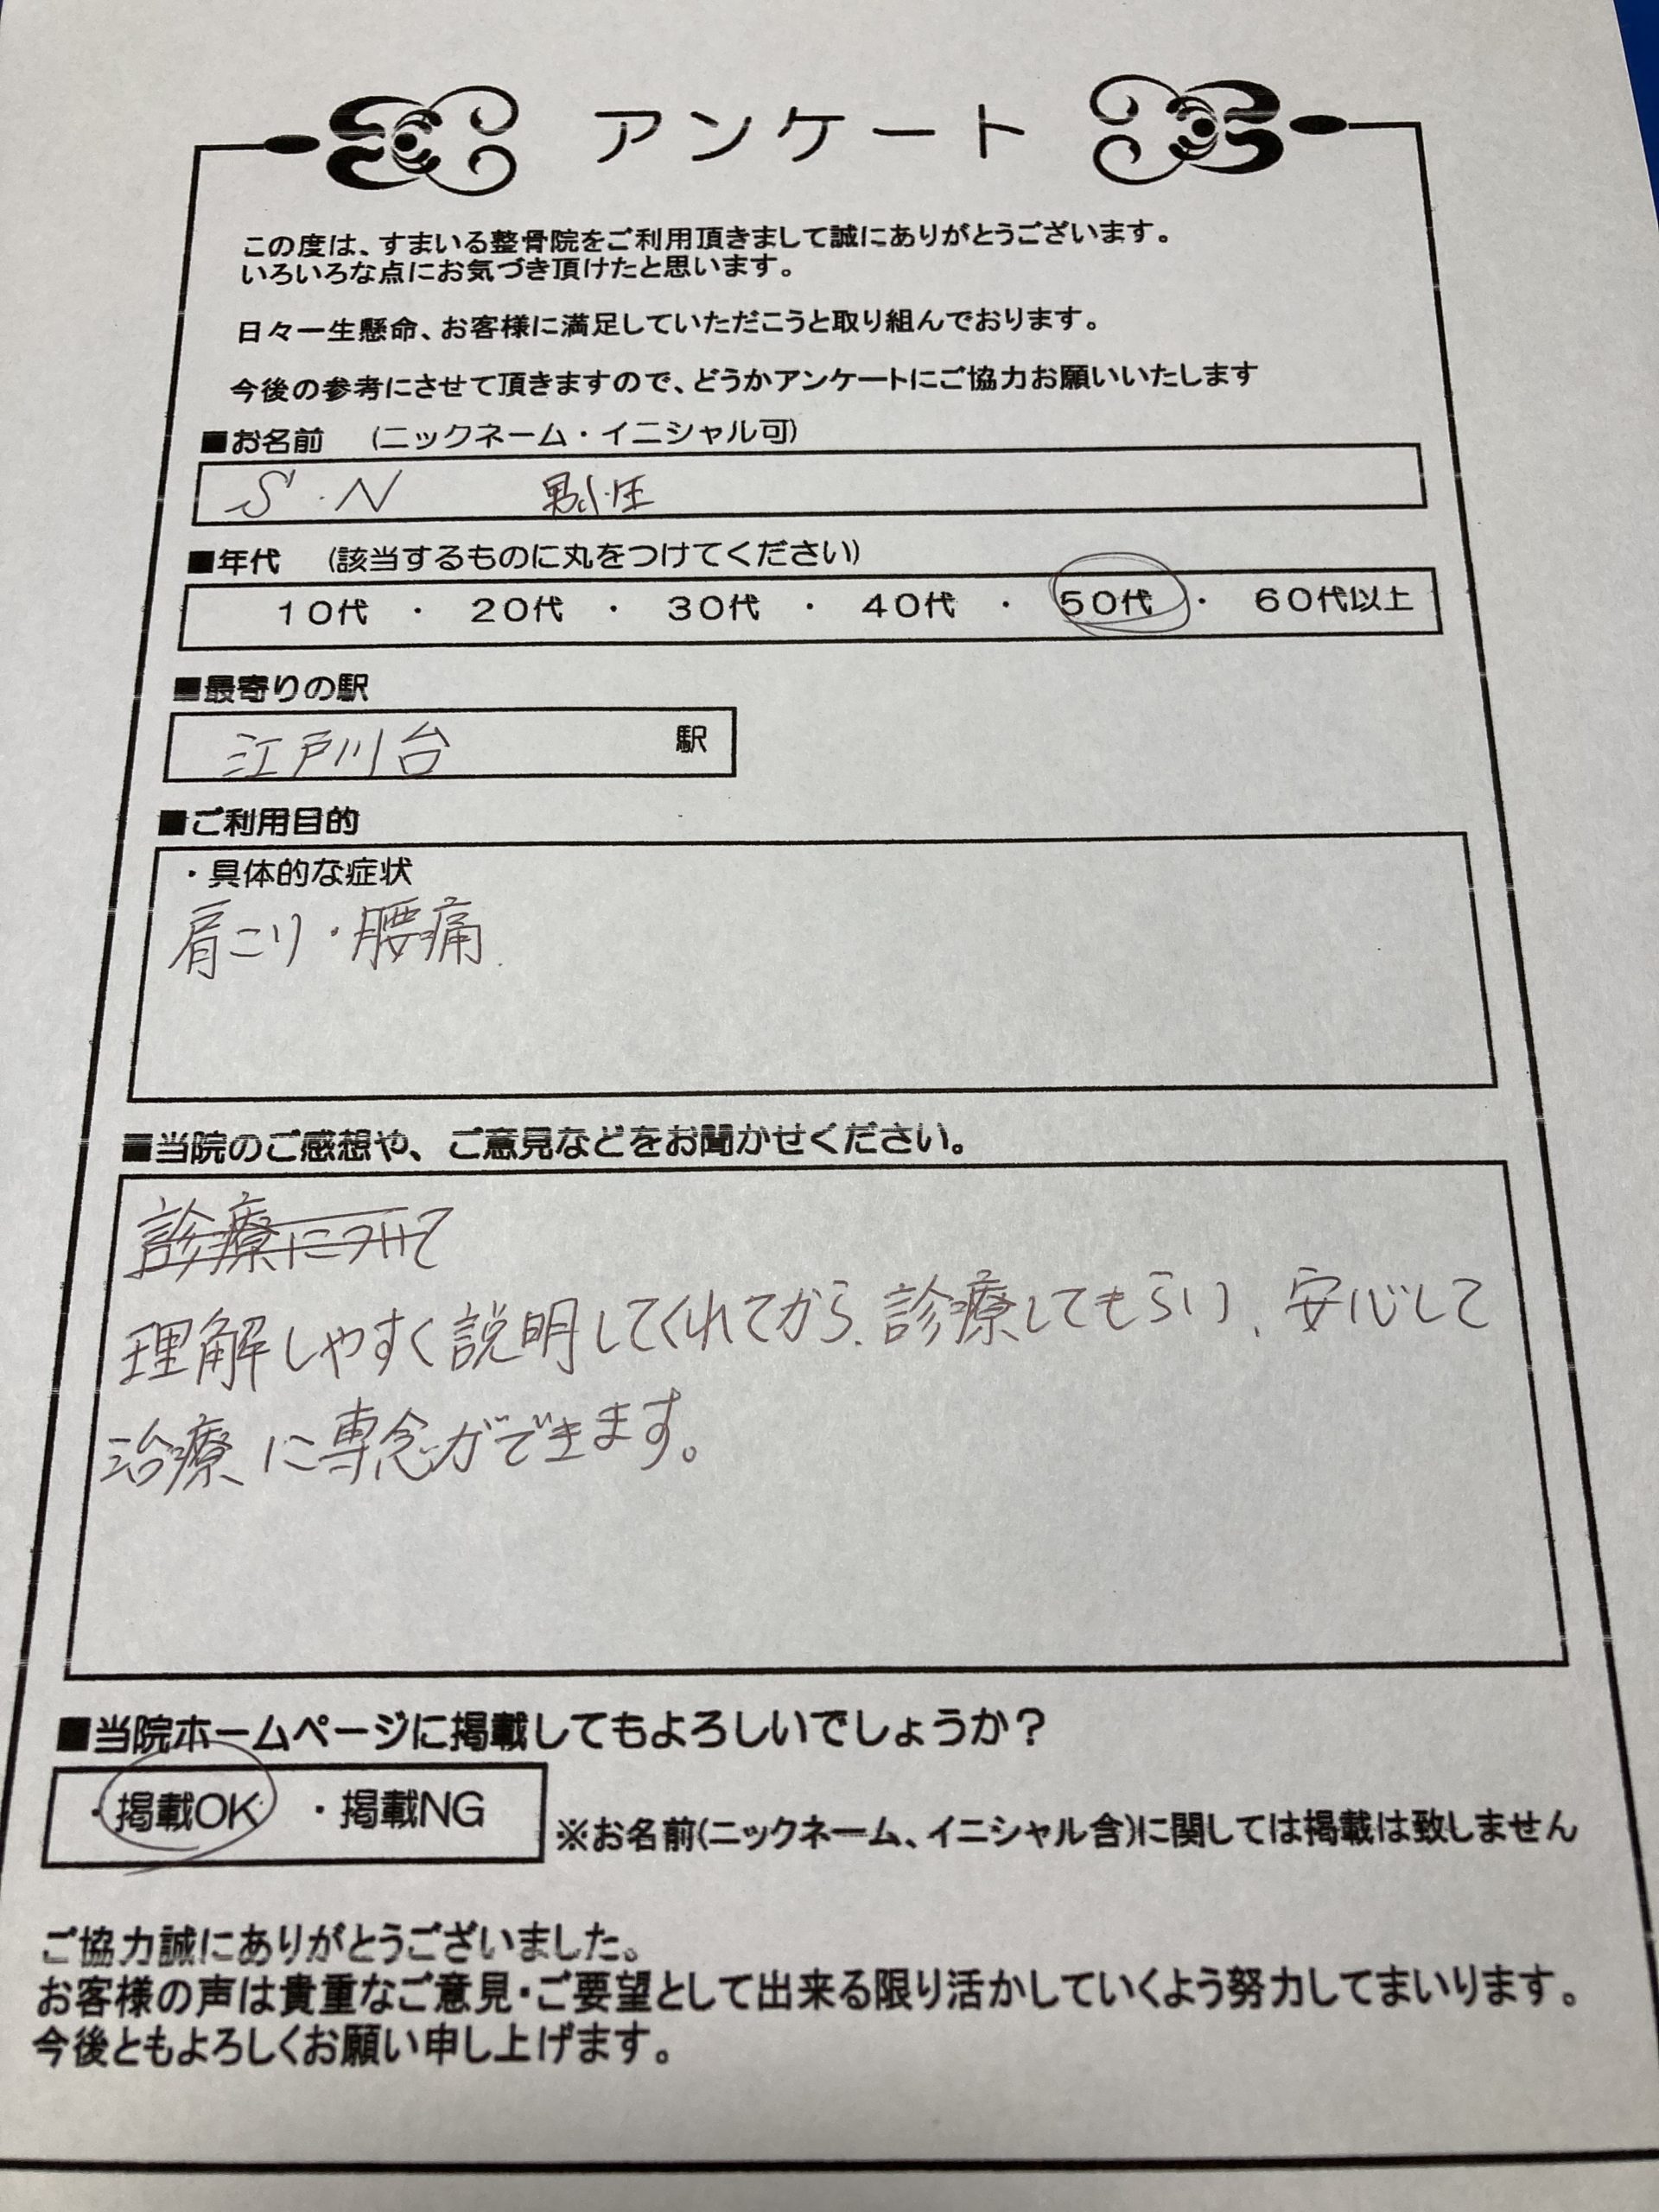 アンケート
この度は、すまいる整骨院をご利用頂きまして誠にありがとうございます。
いろいろな点にお気づき頂けたと思います。
日々一生懸命、お客様に満足していただこうと取り組んでおります。
今後の参考にさせて頂きますので、どうかアンケートにご協力お願いいたします
■お名前 (ニックネーム・イニシャル可)
S・N 男性
■年代 (該当するものに丸をつけてください)
10代 ・ 20代 ・ 30代 ・ 40代 ・ 50代 ・ 60代以上
■最寄りの駅
江戸川台 駅
■ご利用目的
・具体的な症状
肩こり・腰痛.
■当院のご感想や、ご意見などをお聞かせください。
診療について
理解しやすく説明してくれてから、診療してもらい、安心して
治療に専念ができます。
■当院ホームページに掲載してもよろしいでしょうか？
・掲載OK ・掲載NG
※お名前(ニックネーム、イニシャル含)に関しては掲載は致しません
ご協力誠にありがとうございました。
お客様の声は貴重なご意見・ご要望として出来る限り活かしていくよう努力してまいります。
今後ともよろしくお願い申し上げます。